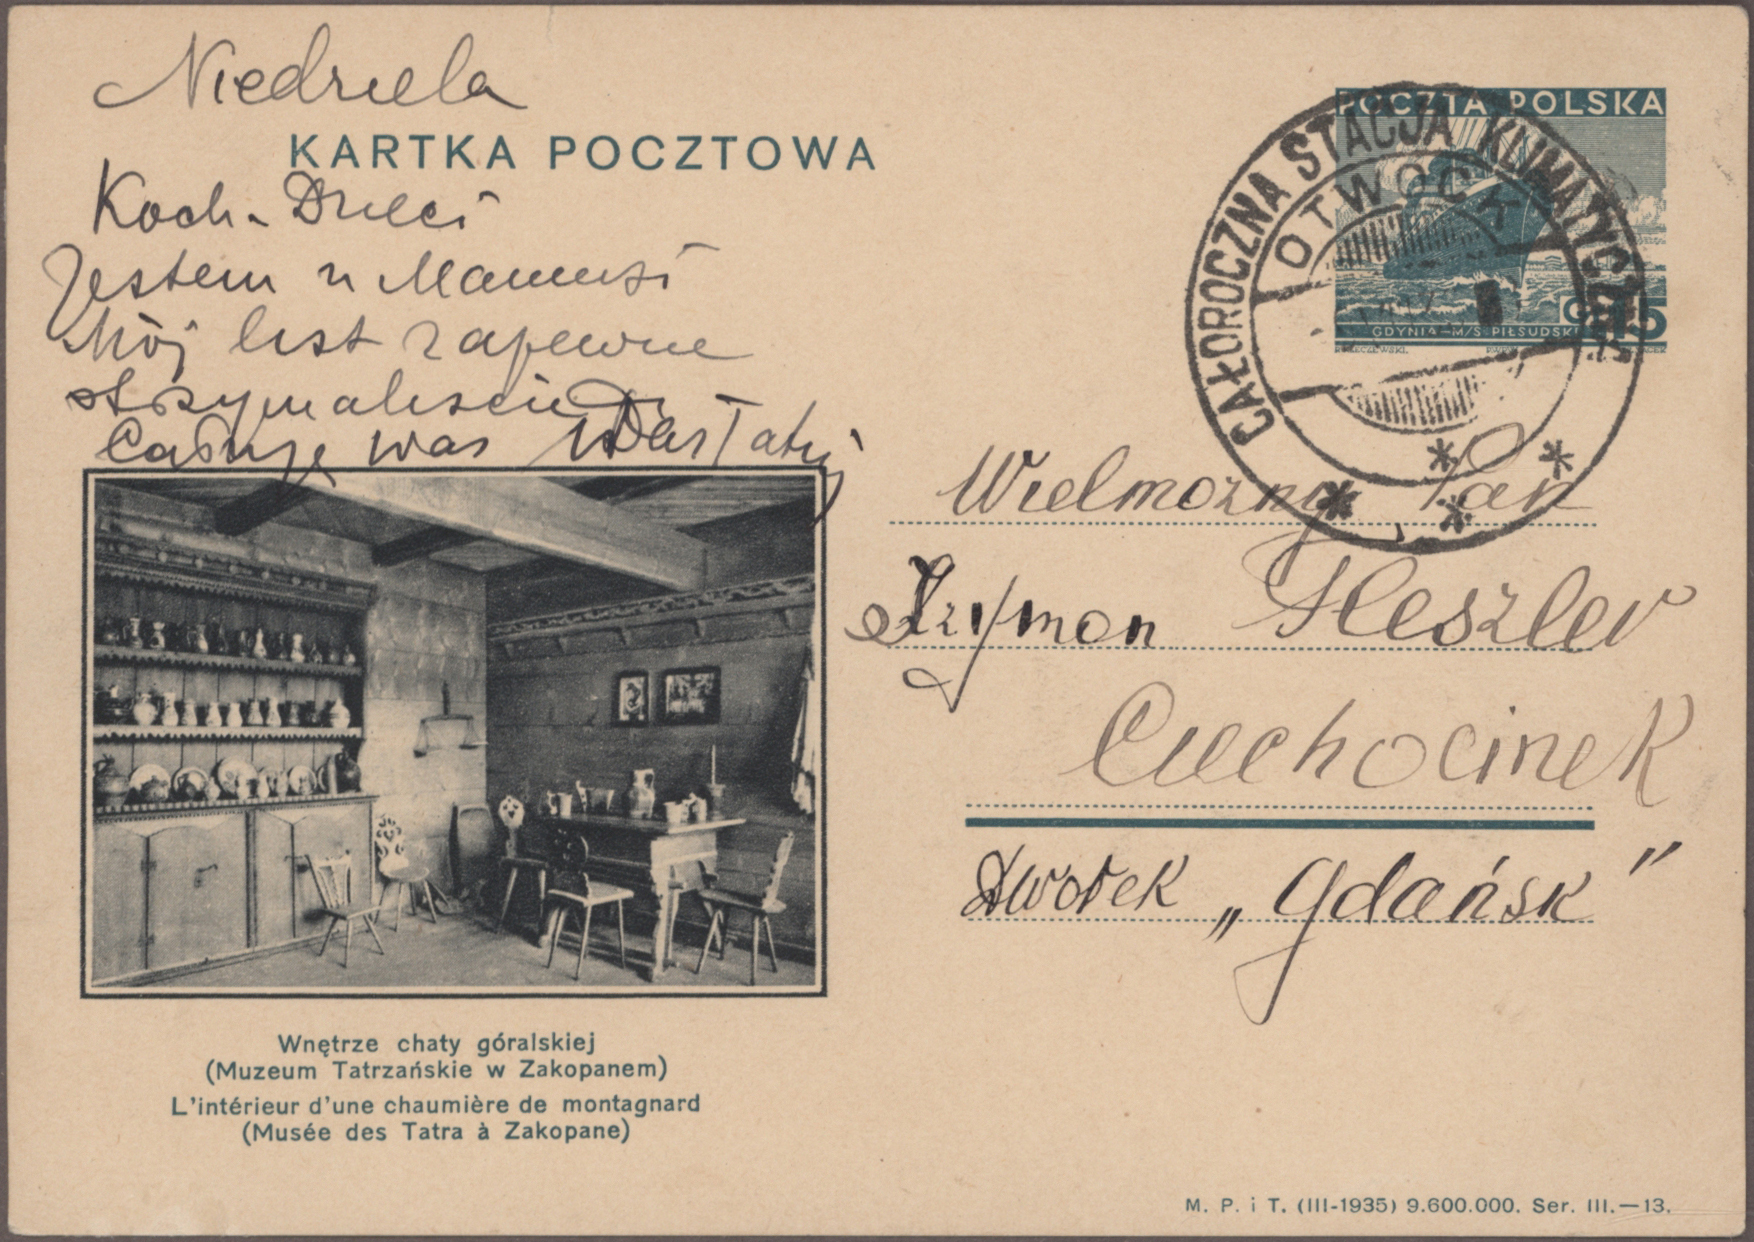 Niedziela
KARTKA POCZTOWA
Koch. Dzieci
Jestem u Mamusi
Mój list zapewne
otrzymaliście
Całuję was Wasz Tatuś
POCZTA POLSKA
GDYNIA—M/S PIŁSUDSKI
GR 15
CAŁOROCZNA STACJA KLIMATYCZNA
OTWOCK
Wielmożny Pan
Szymon Heszler
Ciechocinek
Dworek „Gdańsk"
Wnętrze chaty góralskiej
(Muzeum Tatrzańskie w Zakopanem)
L'intérieur d'une chaumière de montagnard
(Musée des Tatra à Zakopane)
M. P. i T. (III-1935) 9.600.000. Ser. III.—13.